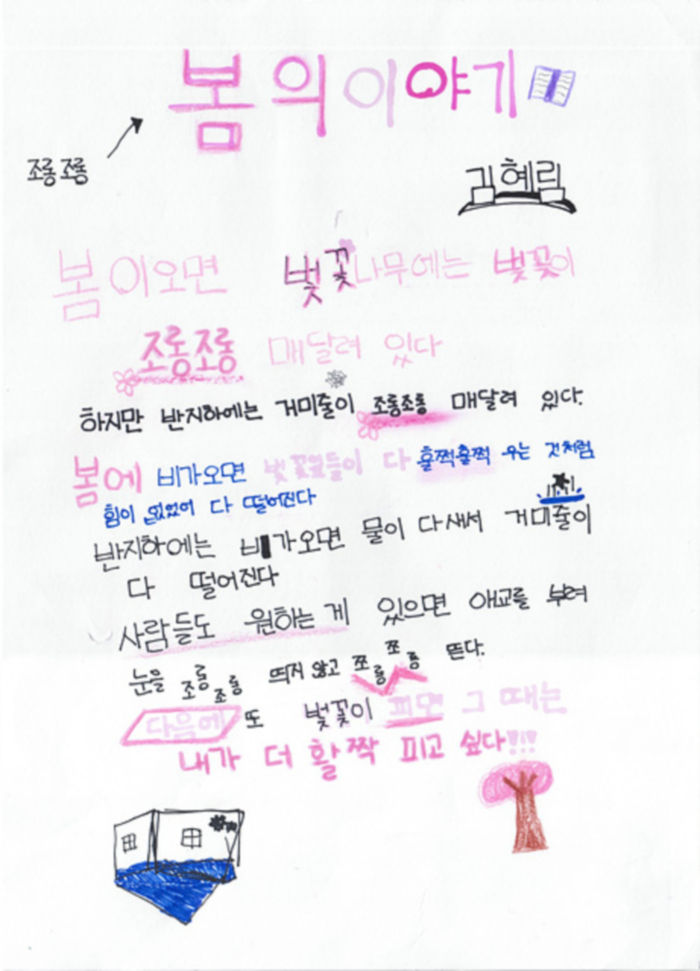 봄의 이야기
조롱조롱
김혜린
봄이오면 벚꽃나무에는 벚꽃이
조롱조롱 매달려 있다
하지만 반지하에는 거미줄이 조롱조롱 매달려 있다.
봄에 비가오면 벚꽃잎들이 다 훌쩍훌쩍 우는 것처럼
힘이 없어 다 떨어진다
반지하에는 비가오면 물이 다새서 거미줄이
다 떨어진다
사람들도 원하는 게 있으면 애교를 부려
눈을 조롱조롱 띄지 않고 쪼롱쪼롱 뜬다.
다음에 또 벚꽃이 피면 그 때는
내가 더 활짝 피고 싶다!!!